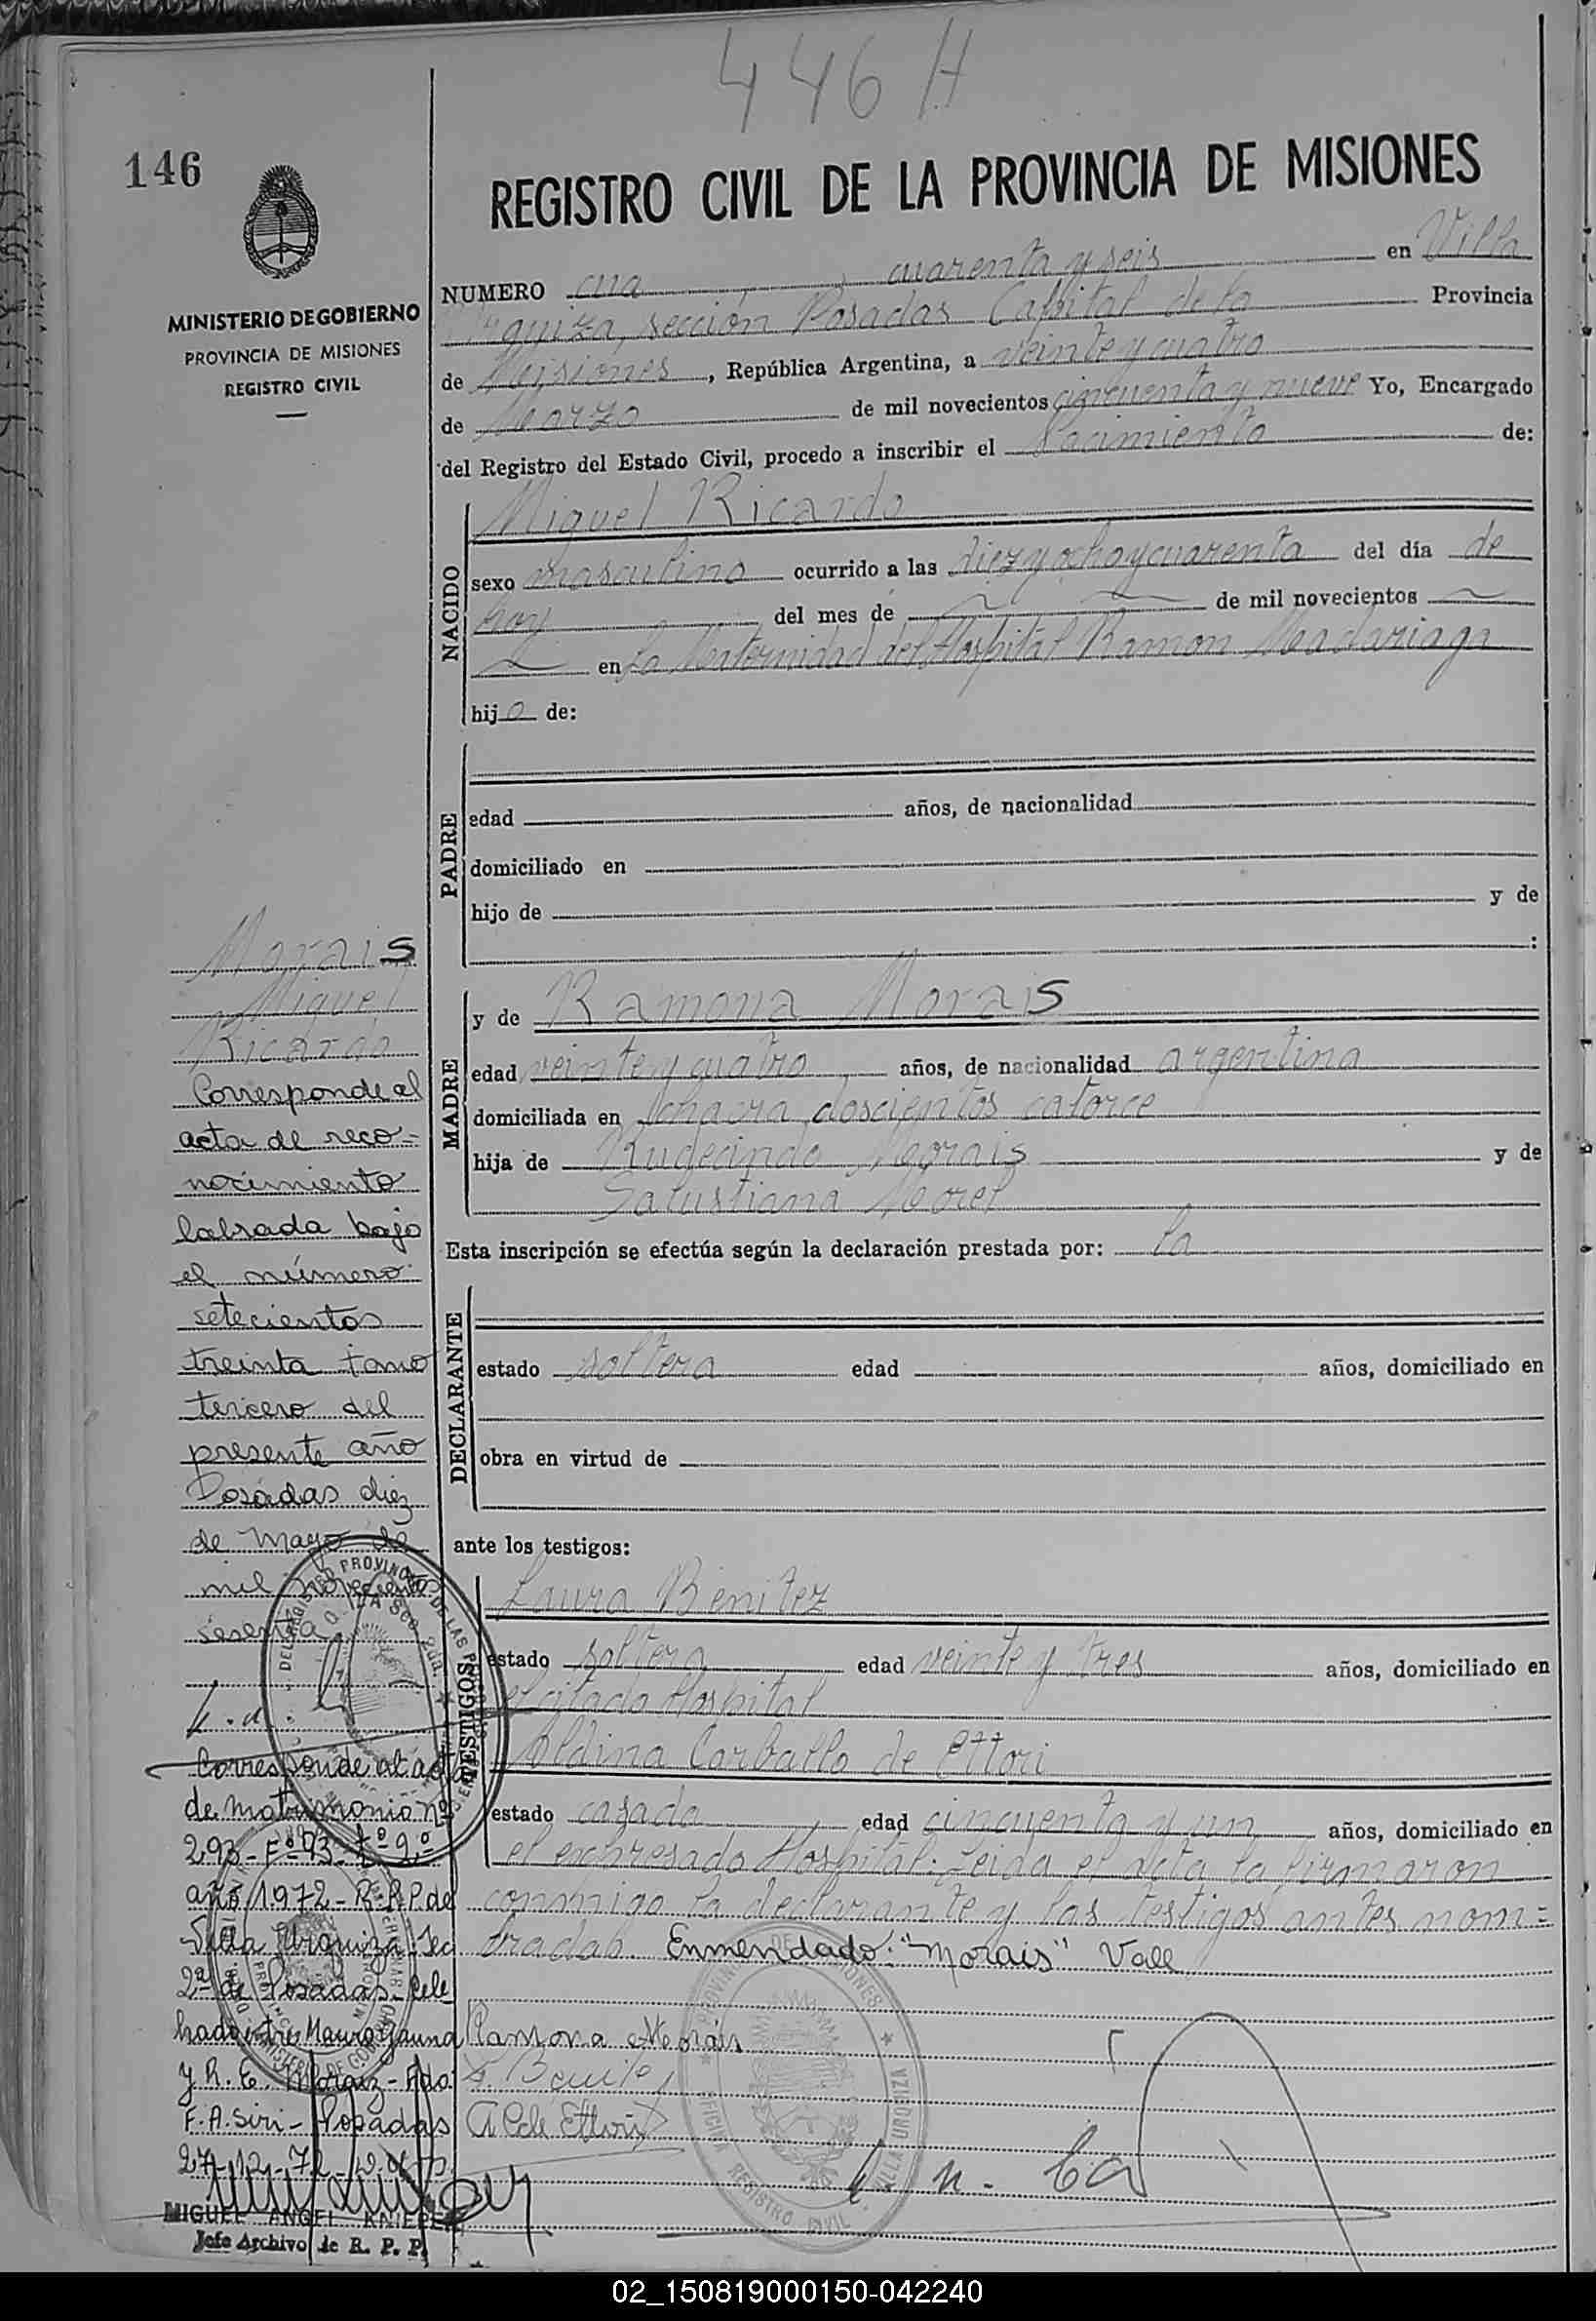 446 H
146
REGISTRO CIVIL DE LA PROVINCIA DE MISIONES
MINISTERIO DE GOBIERNO
PROVINCIA DE MISIONES
REGISTRO CIVIL
NUMERO cua cuarenta y seis en Villa
quiza, sección Posadas Capital de la Provincia
de Misiones, República Argentina, a veinte y cuatro
de Marzo de mil novecientos cincuenta y nueve Yo, Encargado
del Registro del Estado Civil, procedo a inscribir el Nacimiento de:
NACIDO
Miguel Ricardo
sexo masculino ocurrido a las diez y ocho y cuarenta del día de
hoy del mes de de mil novecientos
en La Maternidad del Hospital Ramon Madariaga
hijo de:
PADRE
edad años, de nacionalidad
domiciliado en
hijo de y de
:
MADRE
y de Ramona Morais
edad veinte y cuatro años, de nacionalidad argentina
domiciliada en chacra doscientos catorce
hija de Rudecindo Morais y de
Salustiana Morel
Esta inscripción se efectúa según la declaración prestada por: La
DECLARANTE
estado soltera edad años, domiciliado en
obra en virtud de
ante los testigos:
TESTIGOS
Laura Benitez
estado soltera edad veinte y tres años, domiciliado en
el citado Hospital
Aldina Carballo de Ettori
estado casada edad cincuenta y un años, domiciliado en
el expresado Hospital. Leida el Acta la firmaron
conmigo la declarante y las testigos antes nom=
bradas. Enmendado: "Morais" Vale
Ramona Morais
A C de Ettori
Morais
Miguel
Ricardo
Corresponde al
acta de reco=
nocimiento
labrada bajo
el número
setecientos
treinta tomo
tercero del
presente año
Posadas diez
de Mayo de
mil novecientos
sesenta
Corresponde al acta
de matrimonio nº
293-Fº93-tº2º
año 1972-R.P.P. de
Villa Urquiza-Sec
2ª de Posadas-Cele
brado entre Mauro Gauna
y R. E. Moraiz-Fdo.
F.A. Siri-Posadas
27-12-72
MIGUEL ANGEL KNIEPER
Jefe Archivo de R. P. P.
OFICINA REGISTRO CIVIL VILLA URQUIZA
02_150819000150-042240